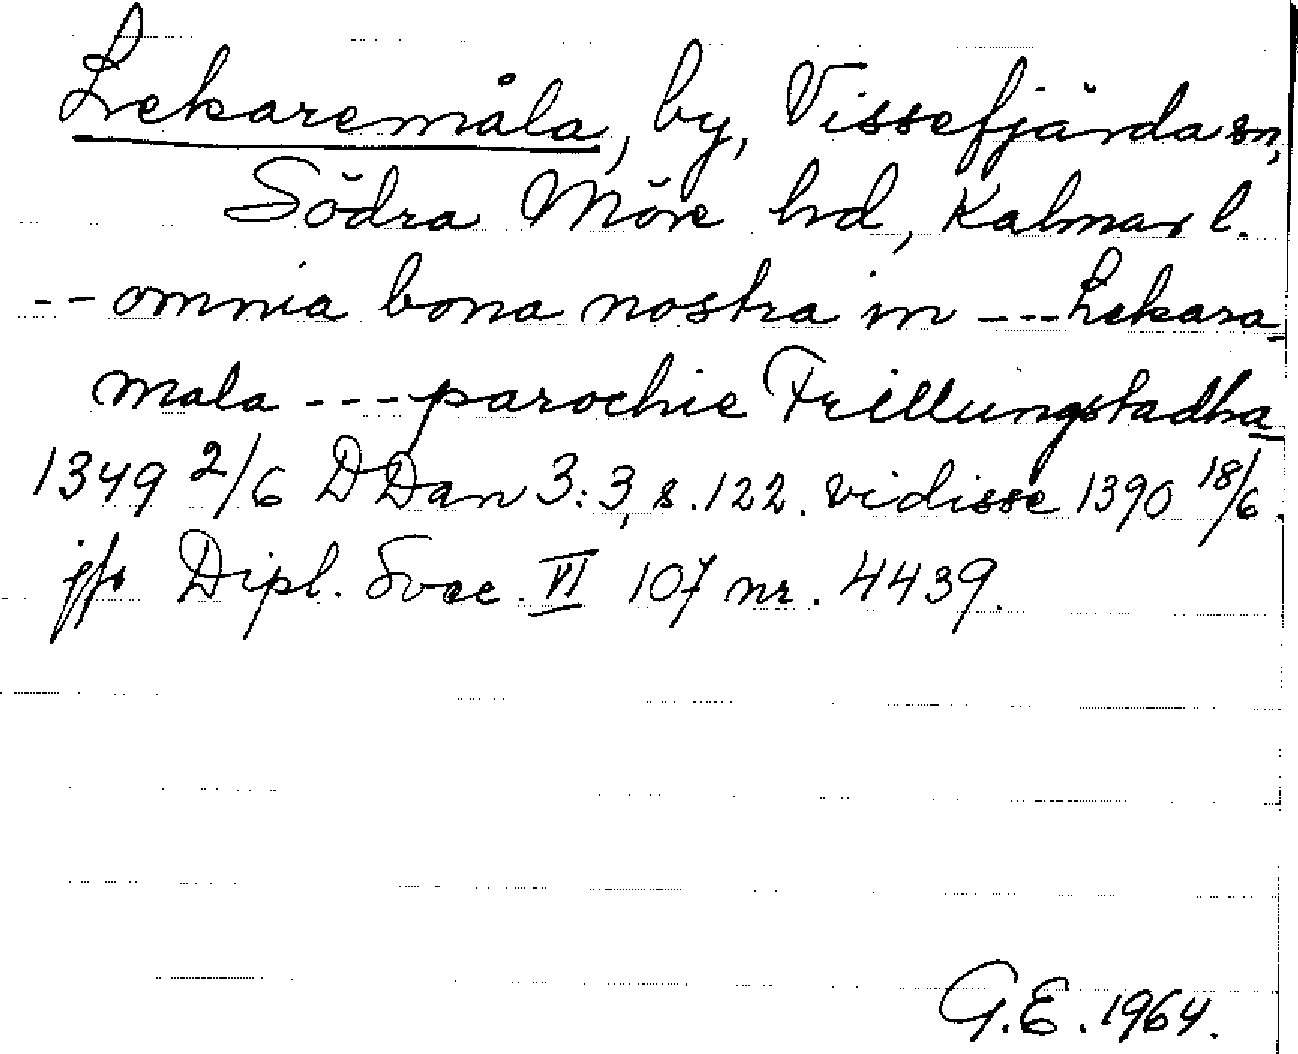 Lekaremåla, by, Vissefjärda sn,
Södra Möre hd, Kalmar l.
-- omnia bona nostra in --- Lekara
mala --- parochie Frillungstadha
1349 2/6 DDan 3:3, s. 122. vidisse 1390 18/6.
jfr Dipl. Svec. VI 107 nr. 4439.
G.E. 1964.